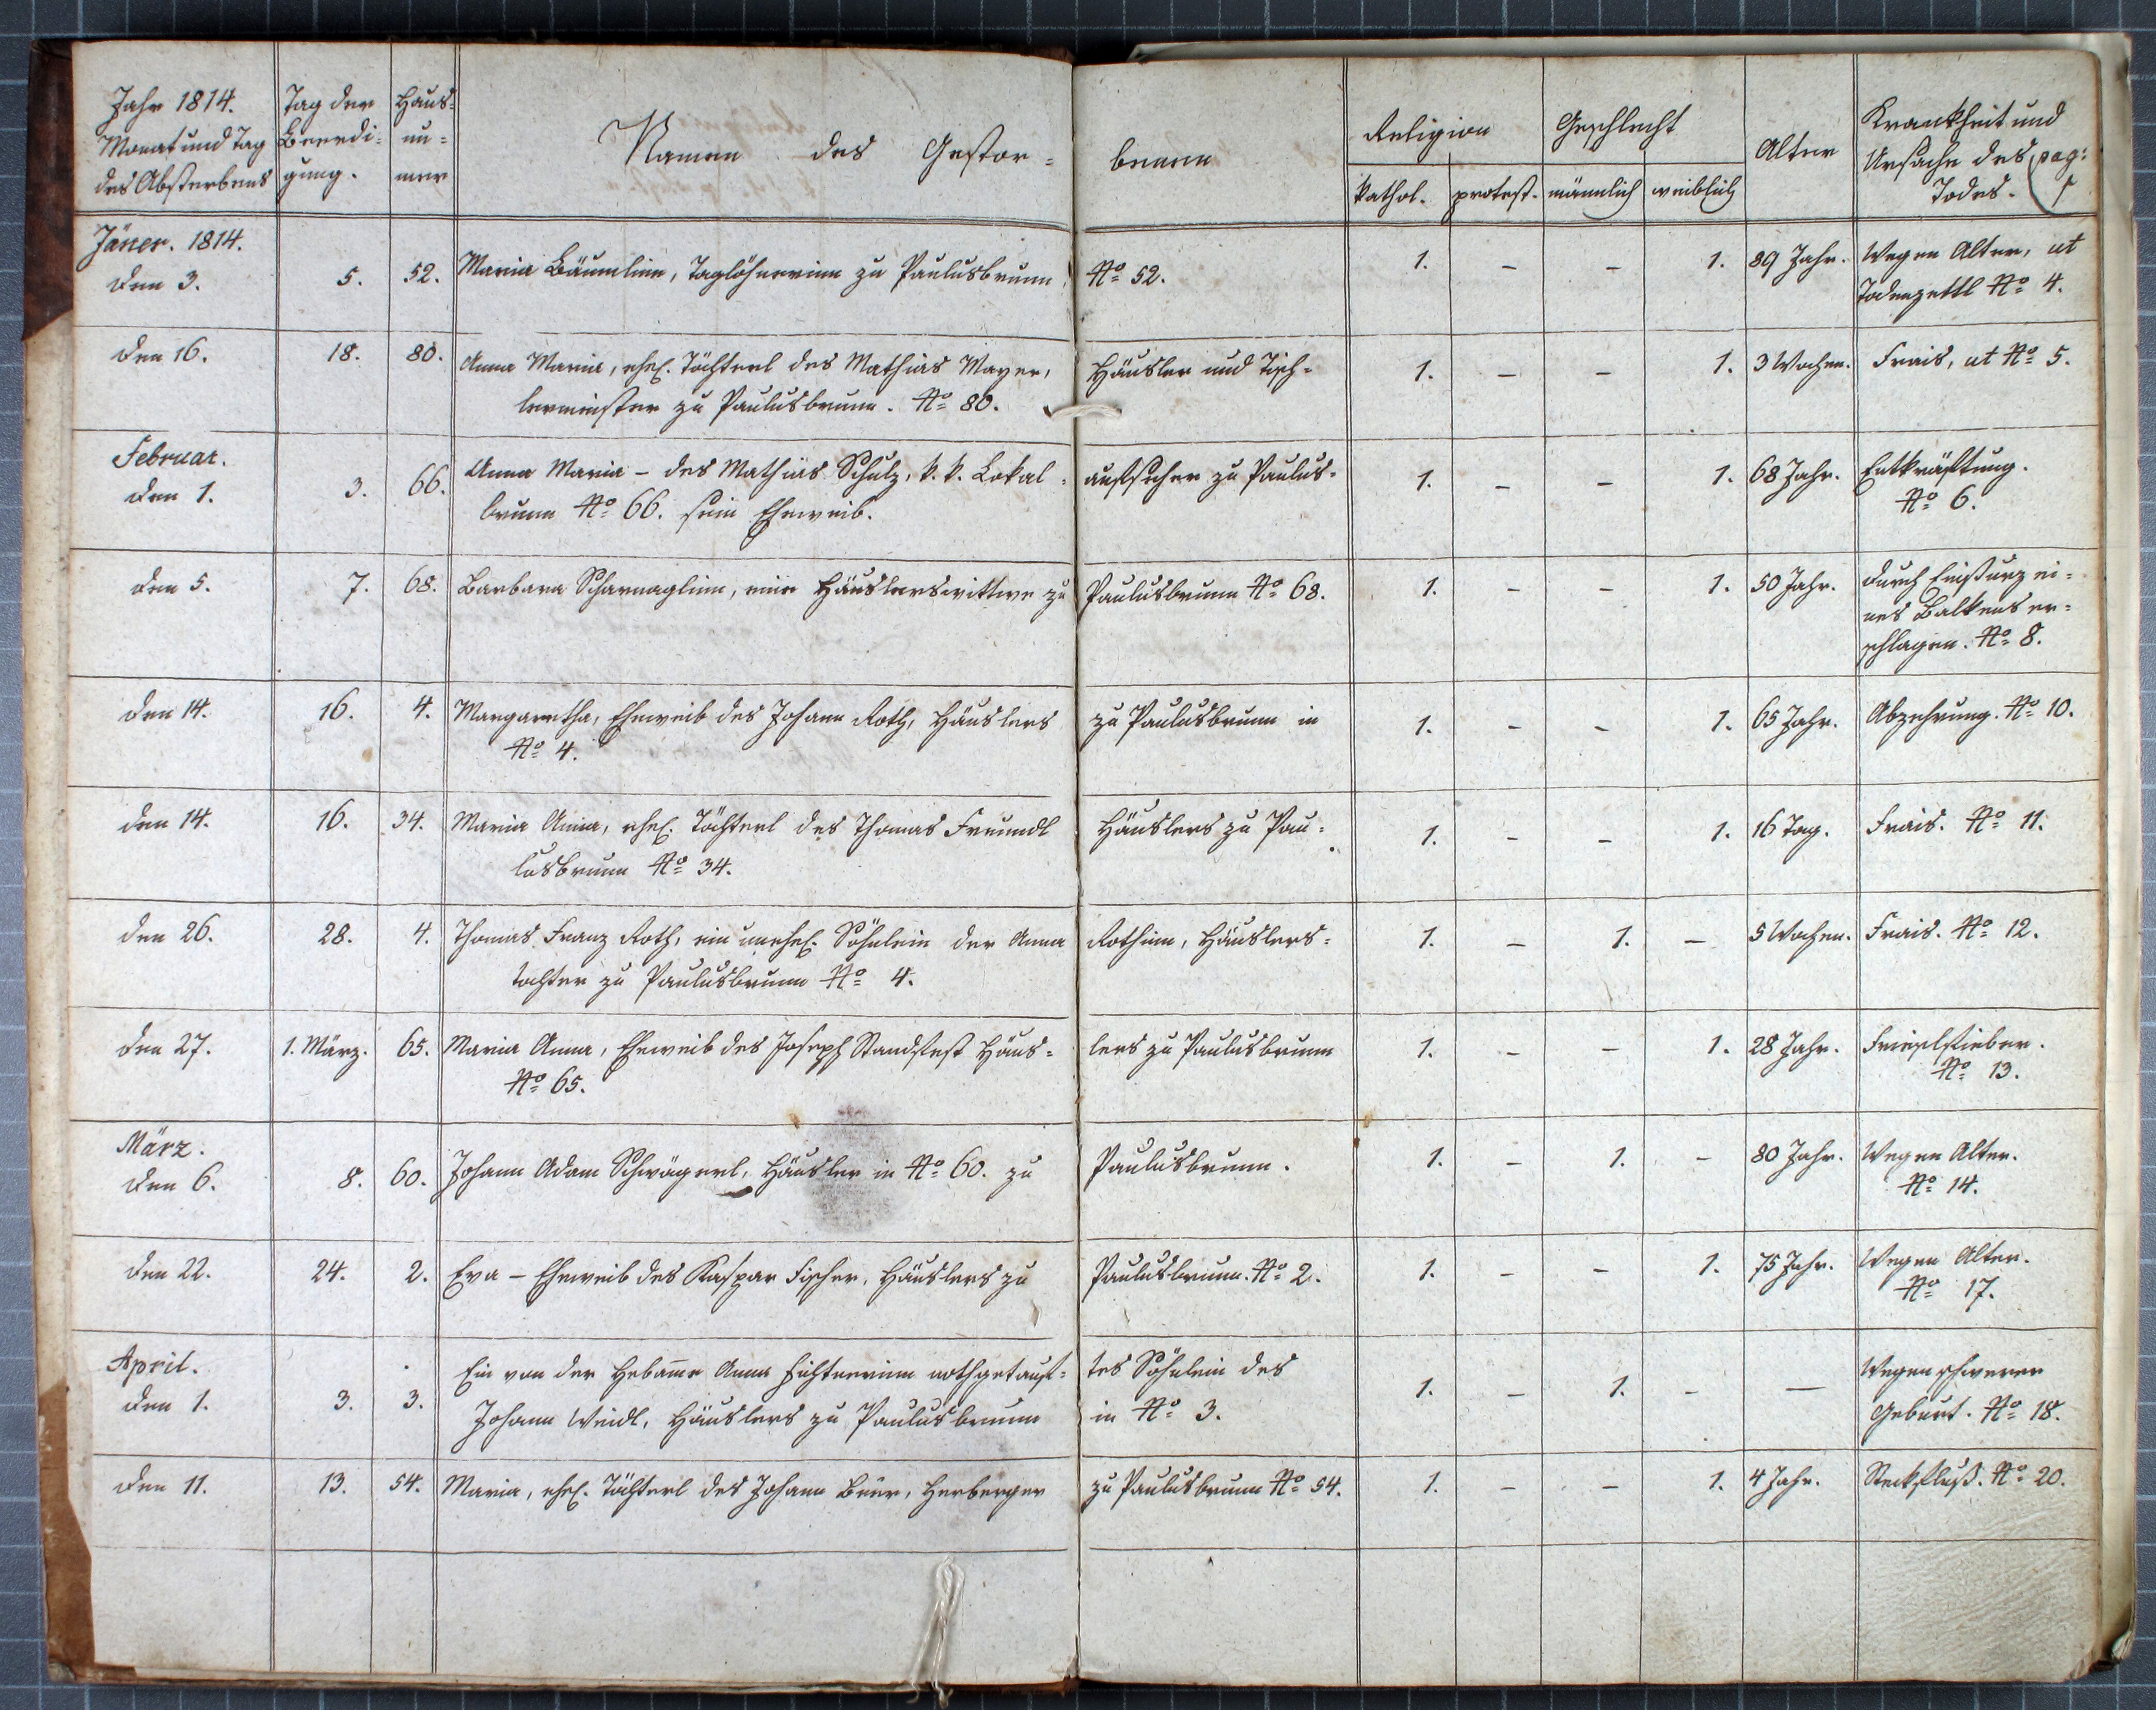 Jahr 1814. Monat und Tag des Absterbens | Tag der Beerdigung. | Hausnumer | Namen des Gestorbenen | Religion kathol. protest. | Geschlecht männlich weiblich | Alter | Krankheit und Ursache des Todes. | pag: 1
Jäner. 1814.
den 3. 5. 52. Maria Bäumlinn, Taglöhnerinn zu Paulusbrunn No 52. 1. – – 1. 89 Jahr. Wegen Alter, ut
Todenzettl No 4.
den 16. 18. 80. Anna Maria, ehel. Töchterl des Mathias Mayer, Häusler und Tisch=
lermeister zu Paulusbrunn. No 80. 1. – – 1. 3 Wochen. Frais, ut No 5.
Februar.
den 1. 3. 66. Anna Maria – des Mathias Schulz, k. k. Lokal= aufseher zu Paulus=
brunn No 66. sein Eheweib. 1. – – 1. 68 Jahr. Entkräftung.
No 6.
den 5. 7. 68. Barbara Scharnaglinn, eine Häuslerswittwe zu Paulusbrunn No 68. 1. – – 1. 50 Jahr. durch Einsturz ei=
nes Balkens er=
schlagen. No 8.
den 14. 16. 4. Margaretha, Eheweib des Johann Roth, Häuslers zu Paulusbrunn in
No 4. 1. – – 1. 65 Jahr. Abzehrung. No 10.
den 14. 16. 34. Maria Anna, ehel. Töchterl des Thomas Freundl Häuslers zu Pau=
lusbrunn No 34. 1. – – 1. 16 Tag. Frais. No 11.
den 26. 28. 4. Thomas Franz Roth, ein unehel. Söhnlein der Anna Rothinn, Häuslers=
tochter zu Paulusbrunn No 4. 1. – 1. – 5 Wochen. Frais. No 12.
den 27. 1. März. 65. Maria Anna, Eheweib des Joseph Standfest Häus= lers zu Paulusbrunn
No 65. 1. – – 1. 28 Jahr. Frieselfieber.
No 13.
März.
den 6. 8. 60. Johann Adam Schwägerl, Häusler in No 60. zu Paulusbrunn. 1. – 1. – 80 Jahr. Wegen Alter.
No 14.
den 22. 24. 2. Eva – Eheweib des Kaspar Fischer, Häuslers zu Paulusbrunn. No 2. 1. – – 1. 75 Jahr. Wegen Alter.
No 17.
April.
den 1. 3. 3. Ein von der Hebame Anna nothgetauf= tes Söhnlein des
Johann Weidl, Häuslers zu Paulusbrunn in No 3. 1. – 1. – — Wegen schwerer
Geburt. No 18.
den 11. 13. 54. Maria, ehel. Töchterl des Johann Herberger zu Paulusbrunn No 54. 1. – – 1. 4 Jahr. Steckfluß. No 20.